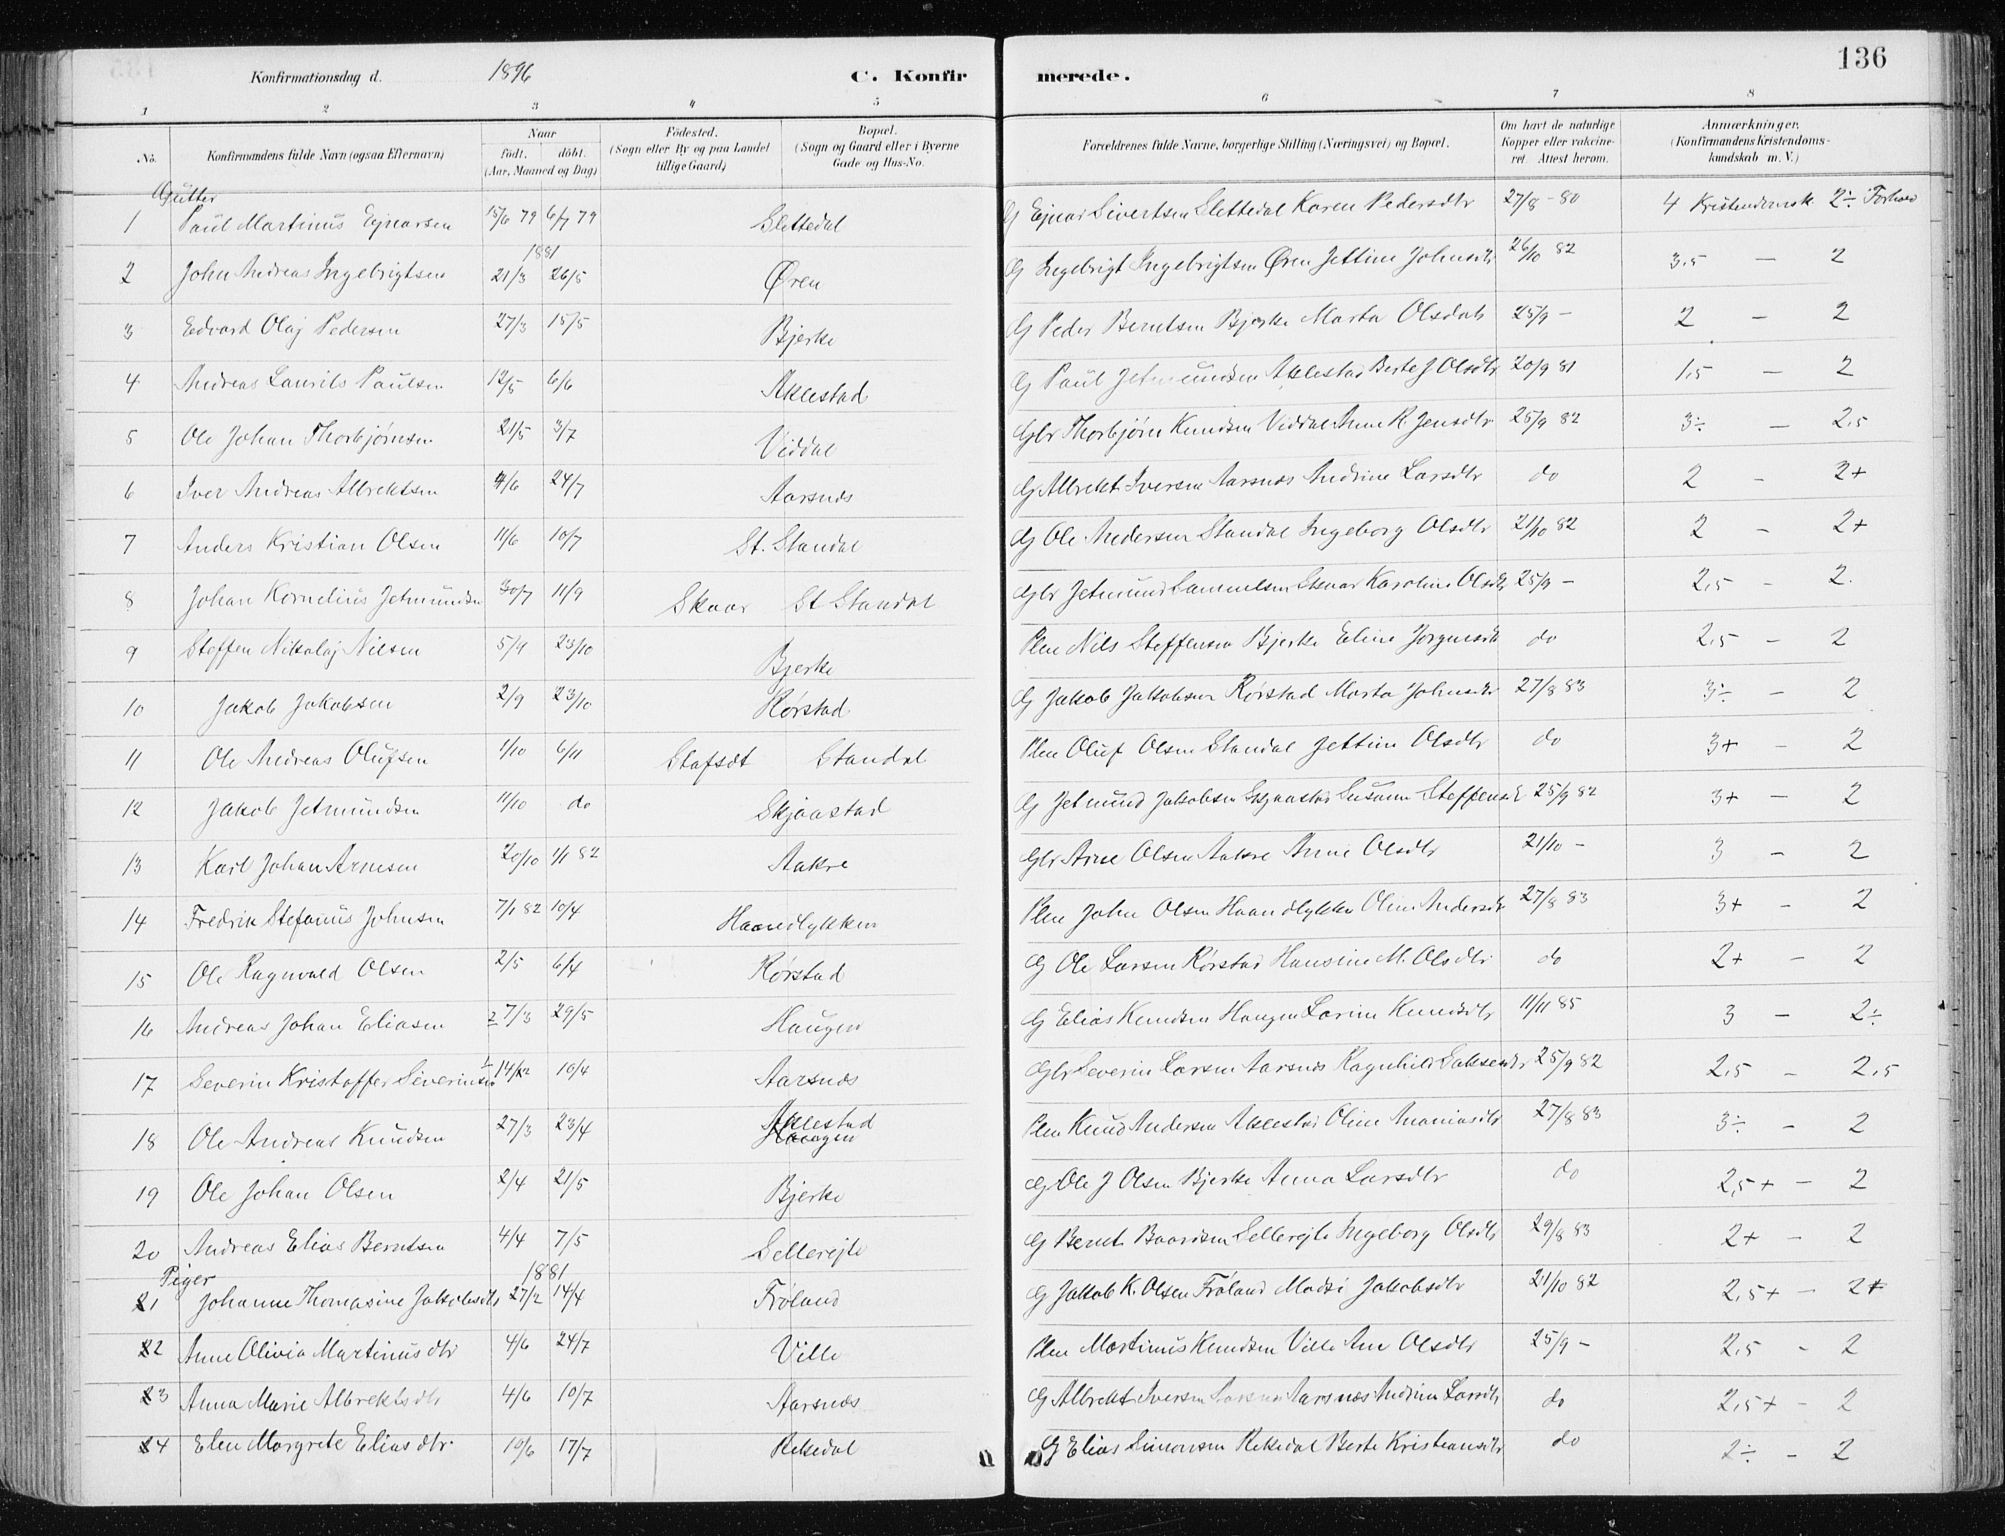 136
Konfirmationsdag d. 1896 C. Konfirmerede.
1 2 3 4 5 6 7 8
No. Konfirmandens fulde Navn (ogsaa Efternavn) Naar födt. döbt. (Aar, Maaned og Dag) Födested. (Sogn eller By og paa Landet tillige Gaard) Bopæl. (Sogn og Gaard eller i Byerne Gade og Hus-No. Forældrenes fulde Navne, borgerlige Stilling (Næringsvei) og Bopæl. Om havt de naturlige Kopper eller vakcineret. Attest herom. Anmærkninger. (Konfirmandens Kristendomskundskab m. V.)
Gutter
1 Paul Martinus Ejnarsen 15/6 79 6/7 79 Slettedal G Ejnar Sivertsen Slettedal Karen Pedersdtr 27/8 - 80 4 Kristendomsk 2÷ Forhold
1881
2 John Andreas Ingebrigtsen 21/3 26/5 Øren G Ingebrigt Ingebrigtsen Øren Jettine Johnsdtr 26/10 82 3.5 — 2
3 Edvard Olaj Pedersen 27/3 15/5 Bjerke G Peder Berntsen Bjerke Marta Olsdatr 25/9 - 2 — 2
4 Andreas Laurits Paulsen 12/5 6/6 Aklestad G Paul Jetmundsen Aklestad Berte J Olsdtr 20/9 81 1,5 — 2
5 Ole Johan Thorbjørnsen 21/5 3/7 Viddal Gbr Thorbjørn Knudsen Viddal Anne K. Jensdtr 25/9 82 3÷ — 2.5
6 Iver Andreas Albrektsen 4/6 24/7 Aarsnes G Albrekt Iversen Aarsnes Andrine Larsdtr do 2 — 2+
7 Anders Kristian Olsen 11/6 10/7 St. Standal G Ole Andersen Standal Ingeborg Olsdtr 21/10 82 2 — 2+
8 Johan Kornelius Jetmundsen 30/7 11/9 Skaar St Standal Gbr Jetmund Samuelsen Skaar Karoline Olsdtr 25/9 - 2,5 — 2.
9 Steffen Nikolaj Nilsen 5/9 23/10 Bjerke Plm Nils Steffensen Bjerke Eline Jørgensdtr do 2.5 — 2
10 Jakob Jakobsen 2/9 23/10 Rørstad G Jakob Jakobsen Rørstad Marta Johnsdtr 27/8 83 3÷ — 2
11 Ole Andreas Olufsen 1/10 6/11 Stafsæt Standal Plm Oluf Olsen Standal Jettine Olsdtr do 3+ — 2
12 Jakob Jetmundsen 11/10 do Skjaastad G Jetmund Jakobsen Skjaastad Susanne Steffensd 25/9 82 3+ — 2
13 Karl Johan Arnesen 20/10 1/1 82 Aakre Gbr Arne Olsen Aakre Anne Olsdtr 21/10 - 3 — 2
14 Fredrik Stefanus Johnsen 7/1 82 10/4 Haandlykken Plm John Olsen Haandlykke Oline Andersdtr 27/8 83 3+ — 2
15 Ole Ragnvald Olsen 2/5 6/4 Rørstad G Ole Larsen Rørstad Hansine M. Olsdtr do 2+ — 2
16 Andreas Johan Eliasen 27/3 29/5 Haugen G Elias Knudsen Haugen Larine Knudsdtr 11/11 85 3 — 2÷
17 Severin Kristoffer Severinsen 14/2 10/4 Aarsnes Gbr Severin Larsen Aarsnes Ragnhild Saksesdtr 25/9 82 2,5 — 2,5
18 Ole Andreas Knudsen 27/3 23/4 Aklestad Haugen Plm Knud Andersen Aklestad Oline Ananiasdtr 27/8 83 3÷ — 2
19 Ole Johan Olsen 2/4 21/5 Bjerke G Ole J Olsen Bjerke Anna Larsdtr do 2,5+ — 2
20 Andreas Elias Berntsen 4/4 7/5 Sellerejte G Bernt Baardsen Sellerejte Ingeborg Olsdtr 29/8 83 2+ — 2
Piger 1881
21 Johanne Thomasine Jakobsdtr 27/2 14/4 Frøland G Jakob K. Olsen Frøland Madsi Jakobsdtr 21/10 82 2,5+ — 2+
22 Anne Olivia Martinusdtr 4/6 24/7 Ville Plm Martinus Knudsen Ville Ane Olsdtr 25/9 - 2,5 - 2
23 Anna Marie Albrektsdtr 4/6 10/7 Aarsnes G Albrekt Iversen Aarsnæs Andrine Larsdtr do 2,5+ - 2
24 Elen Margrete Eliasdtr. 10/6 17/7 Rekedal G Elias Simonsen Rekedal Berte Kristiansdtr do 2÷ - 2